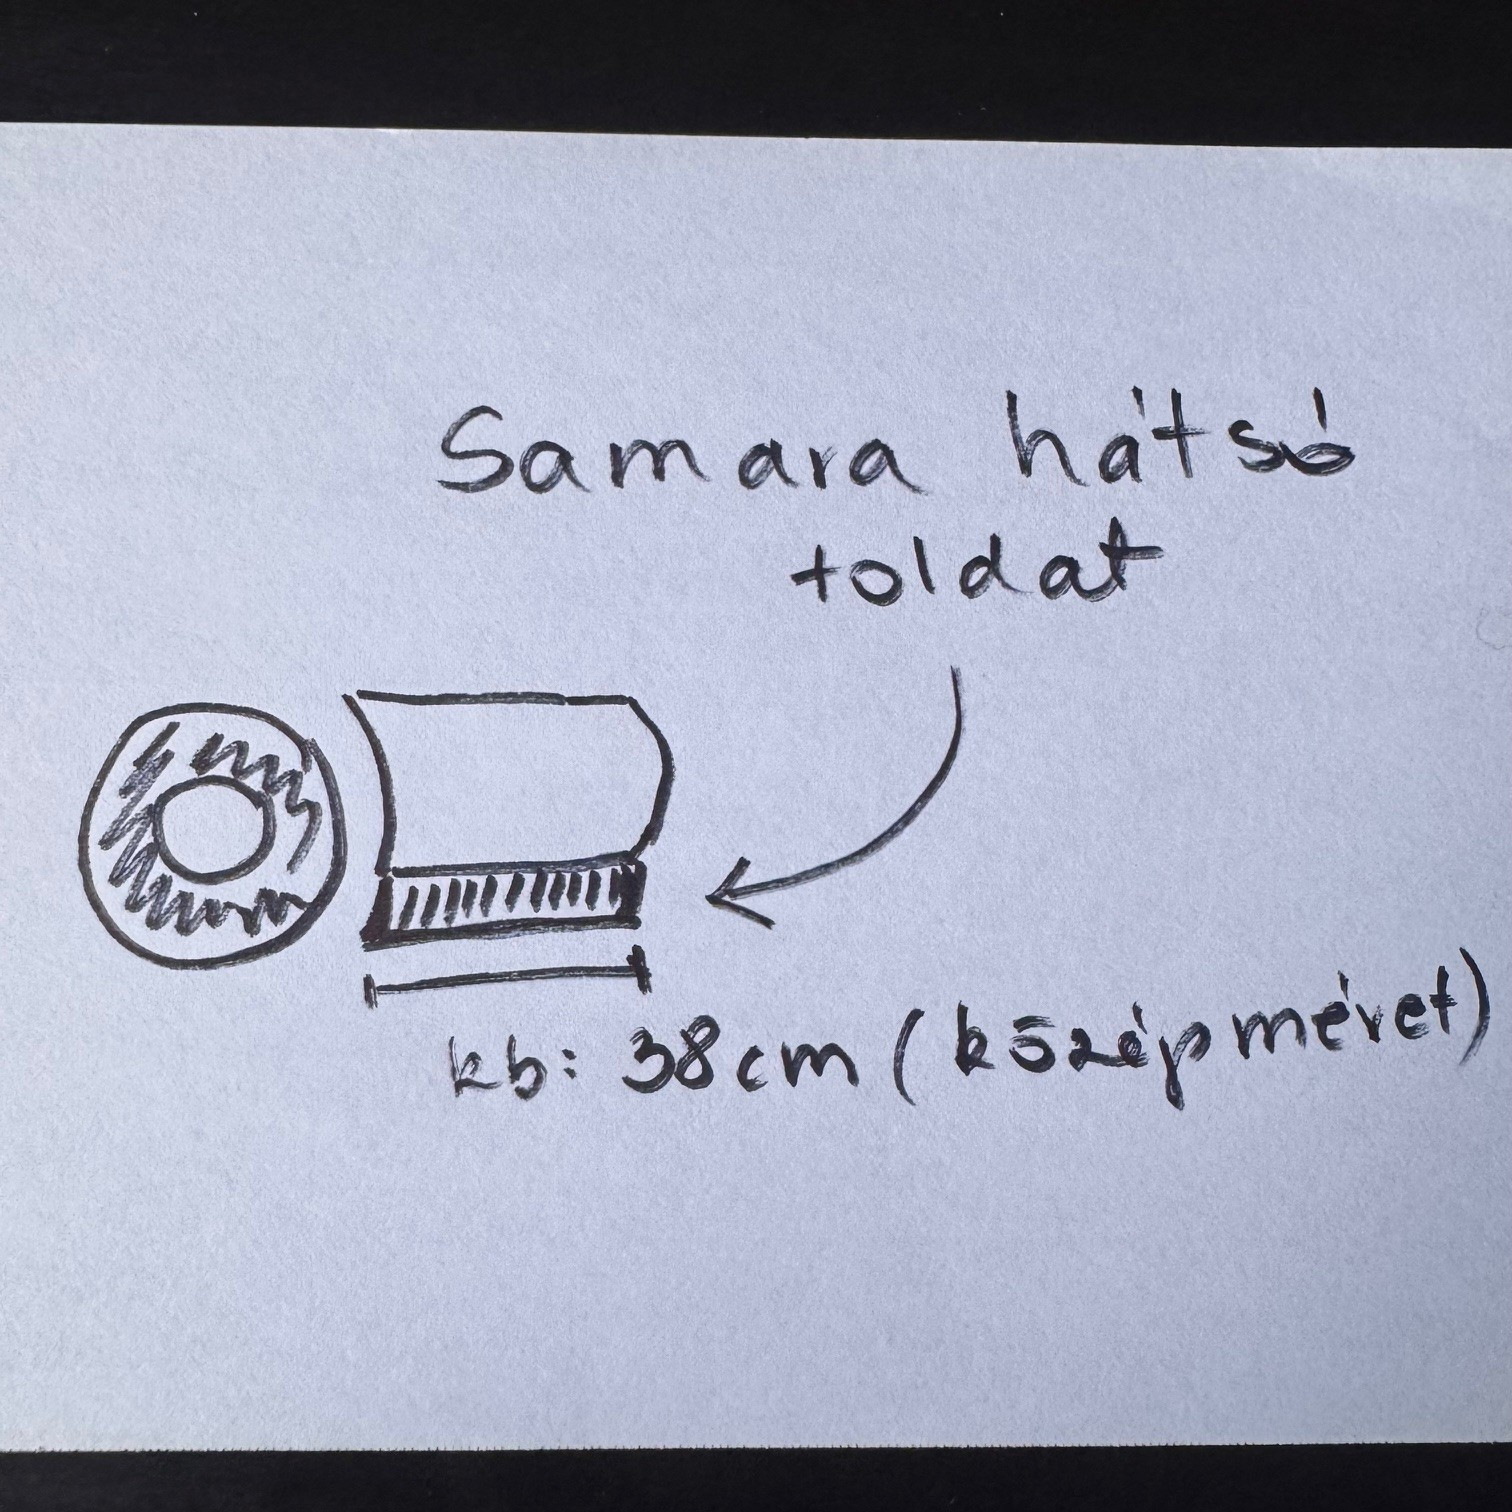 Samara hátsó
toldat
kb: 38cm (középméret)